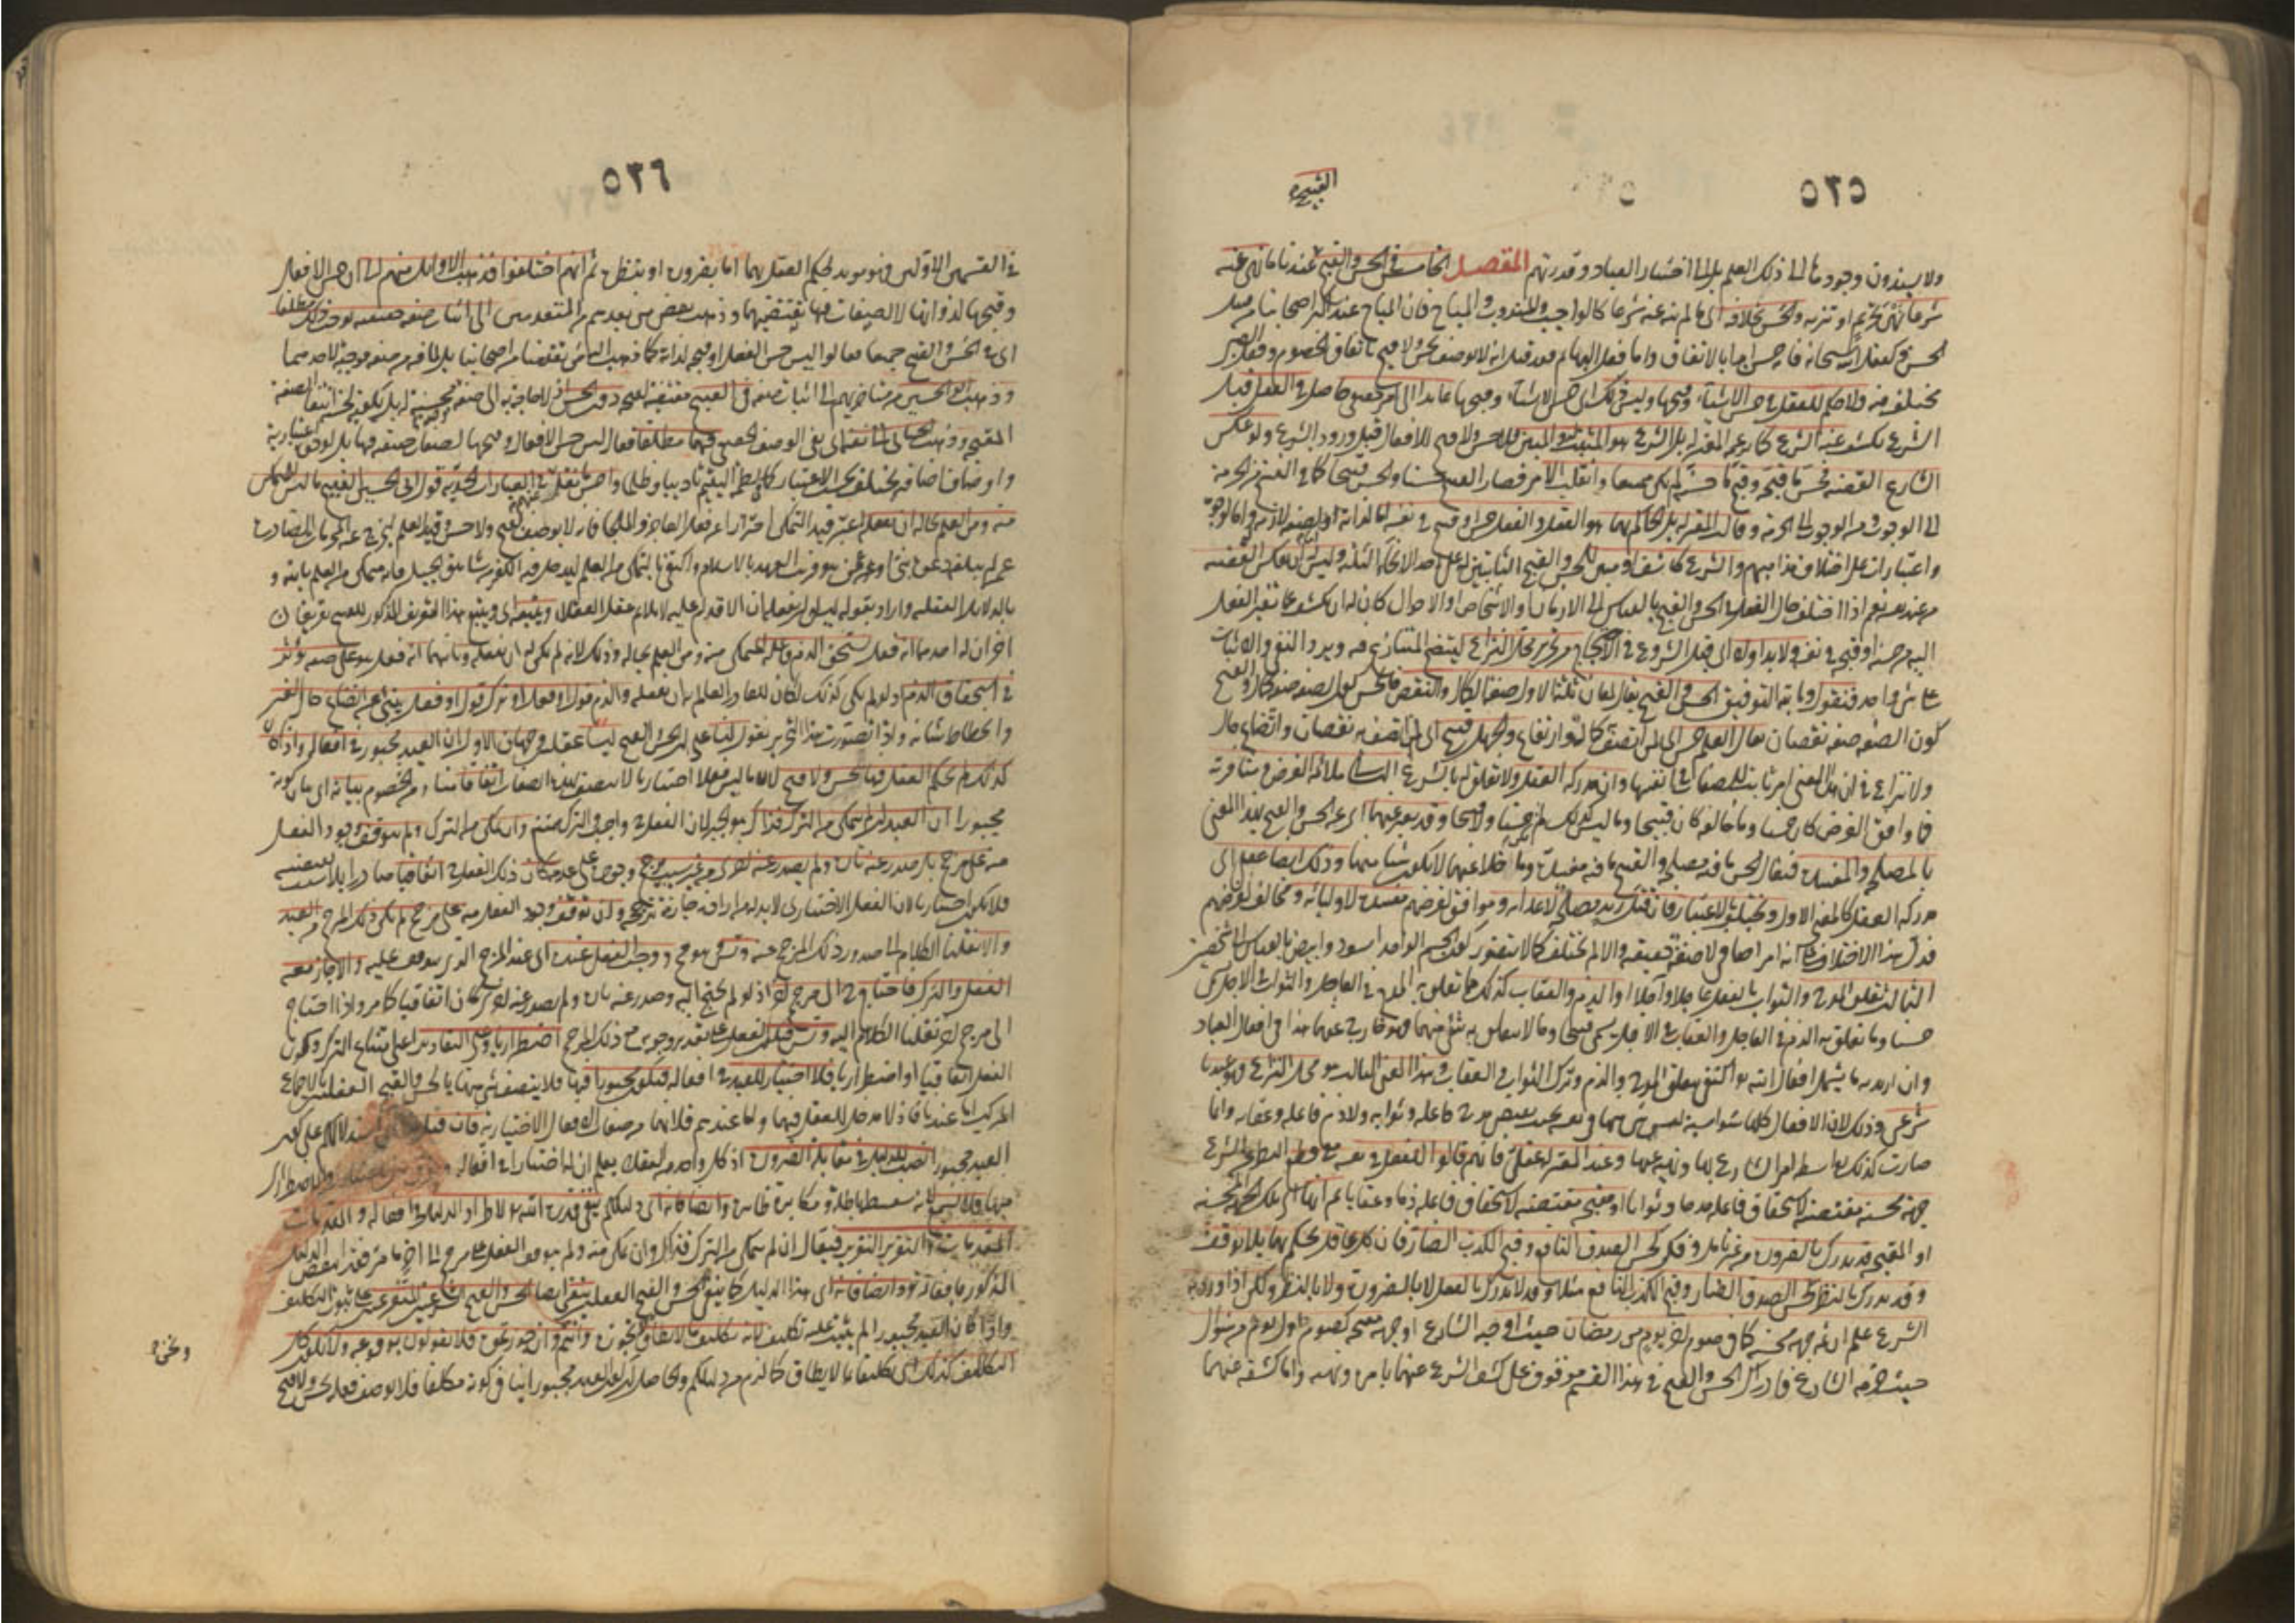 ٥٢٥
القبيح
ولا يسندون وجودها الى ذلك العلم بل الى اختيار العباد وقدرتهم المقصد الخامس في الحسن والقبح القبيح عندنا ما نهى عنه
شرعا نهي تحريم او تنزيه والحسن بخلافه اى ما لم ينه عنه شرعا كالواجب والمندوب والمباح فان المباح عند اكثر اصحابنا من قبيل
الحسن وكفعل الله سبحانه فانه حسن ابدا بالاتفاق واما فعل البهائم فقد قيل انه لا يوصف بحسن ولا قبح باتفاق الخصوم وفعل الصبي
مختلف فيه ولا حكم للعقل في حسن الاشياء وقبحها وليس ذلك اى حسن الاشياء وقبحها عائدا الى امر حقيقي حاصل في الفعل قبل
الشرع يكشف عنه الشرع كما يزعمه المعتزلة بل الشرع هو المثبت له والمبين فلا حسن ولا قبح للافعال قبل ورود الشرع ولو عكس
الشارع القضية فحسن ما قبحه وقبح ما حسنه لم يكن ممتنعا وانقلب الامر فصار القبيح حسنا والحسن قبيحا كما في النسخ من الحرمة
الى الوجوب ومن الوجوب الى الحرمة وقالت المعتزلة بل الحاكم بهما هو العقل والفعل حسن او قبيح في نفسه اما لذاته او لصفة لازمة له واما لوجوه
واعتبارات على اختلاف مذاهبهم والشرع كاشف ومبين للحسن والقبح الثابتين له على احد الانحاء الثلاثة وليس له ان يعكس القضية
من عند نفسه نعم اذا اختلف حال الفعل في الحسن والقبح بالقياس الى الازمان او الاشخاص او الاحوال كان له ان يكشف عما تغير الفعل
اليه من حسنه او قبحه في نفسه ولا بد اولا اى قبل الشروع في الاحتجاج من تحرير محل النزاع ليتضح المتنازع فيه ويرد النفي والاثبات
على شيء واحد فنقول وبالله التوفيق الحسن والقبح يقال لمعان ثلثة الاول صفة الكمال والنقص فالحسن كون الصفة صفة كمال والقبح
كون الصفة صفة نقصان يقال العلم حسن اى لمن اتصف به كمال وارتفاع شان والجهل قبيح اى لمن اتصف به نقصان واتضاع حال
ولا نزاع في ان هذا المعنى امر ثابت للصفات في انفسها وان مدركه العقل ولا تعلق له بالشرع الثاني ملائمة الغرض ومنافرته
فما وافق الغرض كان حسنا وما خالفه كان قبيحا وما ليس كذلك لم يكن حسنا ولا قبيحا وقد يعبر عنهما اى عن الحسن والقبح بهذا المعنى
بالمصلحة والمفسدة فيقال الحسن ما فيه مصلحة والقبيح ما فيه مفسدة وما خلا عنهما لا يكون شيئا منهما وذلك ايضا عقلي اى
مدركه العقل كالمعنى الاول ويختلف بالاعتبار فان قتل زيد مصلحة لاعدائه وموافق لغرضهم ومفسدة لاوليائه ومخالف لغرضهم
فدل هذا الاختلاف على انه امر اضافي لا صفة حقيقية والا لم يختلف كما لا يتصور كون الجسم الواحد اسود وابيض بالقياس الى شخصين
الثالث تعلق المدح والثواب بالفعل عاجلا وآجلا او الذم والعقاب كذلك فما تعلق به المدح في العاجل والثواب في الاجل يسمى
حسنا وما تعلق به الذم في العاجل والعقاب في الاجل يسمى قبيحا وما لا يتعلق به شيء منهما فهو خارج عنهما هذا في افعال العباد
وان اريد به ما يشمل افعال الله تعالى اكتفى بتعلق المدح والذم وترك الثواب والعقاب وهذا المعنى الثالث هو محل النزاع فهو عندنا
شرعي وذلك لان الافعال كلها سواسية ليس شيء منها في نفسه بحيث يقتضي مدح فاعله وثوابه ولا ذم فاعله وعقابه وانما
صارت كذلك بواسطة امر الشارع بها ونهيه عنها وعند المعتزلة عقلي فانهم قالوا للفعل في نفسه مع قطع النظر عن الشرع
جهة محسنة مقتضية لاستحقاق فاعله مدحا وثوابا او مقبحة مقتضية لاستحقاق فاعله ذما وعقابا ثم انها اى تلك الجهة المحسنة
او المقبحة قد تدرك بالضرورة من غير تامل وفكر كحسن الصدق النافع وقبح الكذب الضار فان كل عاقل يحكم بهما بلا توقف
وقد تدرك بالنظر كحسن الصدق الضار وقبح الكذب النافع مثلا وقد لا تدرك بالعقل لا بالضرورة ولا بالنظر ولكن اذا ورد به
الشرع علم ان ثمه جهة محسنة كما في صوم اخر يوم من رمضان حيث اوجبه الشارع او جهة مقبحة كصوم اول يوم من شوال
حيث حرمه الشارع فادراك الحسن والقبح في هذا القسم موقوف على كشف الشرع عنهما بامره ونهيه واما كشفه عنهما
٥٢٦
في القسمين الاولين فهو مؤيد لحكم العقل بهما اما بضرورته او بنظره ثم انهم اختلفوا فذهب الاوائل منهم الى ان حسن الافعال
وقبحها لذواتها لا لصفات فيها تقتضيهما وذهب بعض من بعدهم من المتقدمين الى اثبات صفة حقيقية توجب ذلك مطلقا
اى في الحسن والقبح جميعا فقالوا ليس حسن الفعل او قبحه لذاته كما ذهب اليه من تقدمنا من اصحابنا بل لما فيه من صفة موجبة لاحدهما
وذهب ابو الحسين من متاخريهم الى اثبات صفة في القبيح مقتضية لقبحه دون الحسن اذ لا حاجة به الى صفة محسنة له بل يكفيه لحسنه انتفاء الصفة
المقبحة وذهب الجبائي الى نفيه اى نفي الوصف الحقيقي فيهما مطلقا فقال ليس حسن الافعال وقبحها لصفات حقيقية فيها بل لوجوه اعتبارية
واوصاف اضافية تختلف بحسب الاعتبار كما في لطم اليتيم تاديبا وظلما واحسن ما نقل عنهم في العبارات الحدية قول ابي الحسين القبيح ما ليس للمتمكن
منه ومن العلم بحاله ان يفعله اعتبر قيد التمكن احترازا عن فعل العاجز والملجأ فانه لا يوصف بقبح ولا حسن وقيد العلم ليخرج عنه المحرمات الصادرة
عمن لم يبلغه دعوة نبي او عمن هو قريب العهد بالاسلام واكتفى بالتمكن من العلم ليدخل فيه الكفر ممن في شاهق الجبل فانه متمكن من العلم بالله
بالدلائل العقلية واراد بقوله ليس له ان يفعله ان الاقدام عليه لا يلائم عقل العقلاء ويتبعه اى ويتبع هذا التعريف المذكور للقبيح تعريفان
اخران له احدهما انه فعل يستحق الذم فاعله المتمكن منه ومن العلم بحاله وذلك لانه لم يكن له ان يفعله وثانيهما انه فعل هو على صفة تؤثر
في استحقاق الذم اذ لو لم يكن كذلك لكان للقادر العالم به ان يفعله والذم قول او فعل او ترك قول او فعل ينبئ عن اتضاع حال الغير
وانحطاط شانه واذا تصورت هذا التحرير نقول لنا على ان الحسن والقبح ليسا عقليين وجهان الاول ان العبد مجبور في افعاله واذا كان
كذلك لم يحكم العقل فيها بحسن ولا قبح لان ما ليس فعلا اختياريا لا يتصف بهذه الصفات اتفاقا منا ومن الخصوم بيانه اى بيان كونه
مجبورا ان العبد ان لم يتمكن من الترك فذاك هو الجبر لان الفعل واجب والترك ممتنع وان تمكن من الترك ولم يتوقف وجود الفعل
منه على مرجح بل صدر عنه تارة ولم يصدر عنه اخرى من غير سبب مرجح وجوده على عدمه كان ذلك الفعل اتفاقيا صادرا بلا سبب يقتضيه
فلا يكون اختياريا لان الفعل الاختياري لا بد له من ارادة جازمة ترجحه وان توقف وجود الفعل منه على مرجح لم يكن ذلك المرجح من العبد
والا نقلنا الكلام الى صدور ذلك المرجح عنه وتسلسل وهو مح ووجب الفعل عنده اى عند المرجح الذى يتوقف عليه والا جاز معه
الفعل والترك فاحتاج ح الى مرجح اخر اذ لو لم يحتج اليه وصدر عنه تارة ولم يصدر عنه اخرى كان اتفاقيا كما مر واذا احتاج
الى مرجح اخر نقلنا الكلام اليه وتسلسل فيكون الفعل على تقدير وجوبه مع ذلك المرجح اضطراريا وعلى التقادير اعني امتناع الترك وكون
الفعل اتفاقيا او اضطراريا فلا اختيار للعبد في افعاله فيكون مجبورا فيها فلا يتصف شيء منها بالحسن والقبح العقليين بالاجماع
المركب اما عندنا فاذ لا مدخل للعقل فيهما واما عندهم فلانهما من صفات الافعال الاختيارية فان قيل استدلالكم على كون
العبد مجبورا نصب للدليل في مقابلة الضرورة اذ كل واحد من العقلاء يعلم ان له اختيارا في افعاله
فيها فلا يسمع لانه سفسطة باطلة ومكابرة ظاهرة وايضا فانه اى دليلكم ينفي قدرة الله تعالى لاطراد الدليل في افعاله والمقدمات
المقدمات والتقرير التقرير فيقال ان لم يتمكن من الترك فذاك وان تمكن منه ولم يتوقف الفعل على مرجح الى اخر ما مر فقد انتقض الدليل
المذكور بافعاله تعالى وايضا فانه اى هذا الدليل كما ينفي الحسن والقبح العقليين ينفي ايضا الحسن والقبح الشرعيين المتفرعين على ثبوت التكليف
واذا كان العبد مجبورا لم يثبت عليه تكليف لانه تكليف ما لا يطاق ونحن لا نجوزه وانتم وان جوزتموه فلا تقولون بوقوعه ولا بكون كل
التكاليف كذلك اى تكليفا بما لا يطاق كما لزم من دليلكم والحاصل ان كون العبد مجبورا ينافي كونه مكلفا فلا يوصف فعله بحسن ولا قبح
ونحن